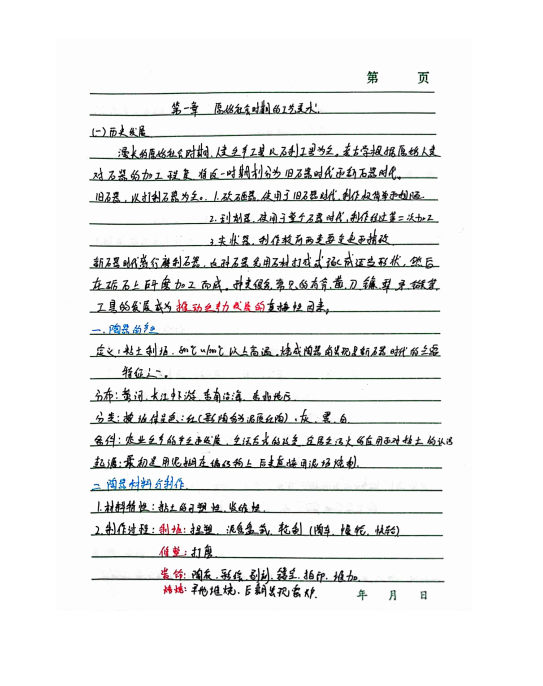 第 页
第一章 原始社会时期的工艺美术
(一)历史发展
漫长的原始社会时期,主要生产工具以石制工具为主。考古学根据原始人类
对石器的加工程度将这一时期划分为旧石器时代和新石器时代。
旧石器,以打制石器为主。1.砍砸器,使用于旧石器时代,制作较简单而粗陋
2.刮削器,使用于整个石器时代,制作经过第二次加工
3.尖状器,制作较前两类更进步而精致
新石器时代盛行磨制石器,这种石器先用石材打成或琢成适当形状,然后
在砺石上研磨加工而成。种类很多,常见的有斧、凿、刀、镰、犁
工具的发展成为推动生产力发展的直接性因素。
一、陶器的产生
定义:粘土制坯,800℃ 以上高温,烧成陶器的出现是新石器时代的主要
特征之一。
分布:黄河、长江中下游、东南沿海
分类:按坯体呈色:红(彩陶多为泥质红陶)、灰、黑、白
条件:农业生产的 发展、生活方式的改变、 火的应用和对粘土的认识
起源:最初是用泥糊在编织物上,后来直接用泥坯烧制
二、陶器材料与制作
1.材料特性:粘土的可塑性、烧结性
2.制作过程:制坯:捏塑、泥条盘筑、轮制(陶车、慢轮、快轮)
修整:打磨
装饰:陶衣、彩绘、刻划、镂空、拍印、堆加
烧焙:平地堆烧,后期出现窑炉
年 月 日